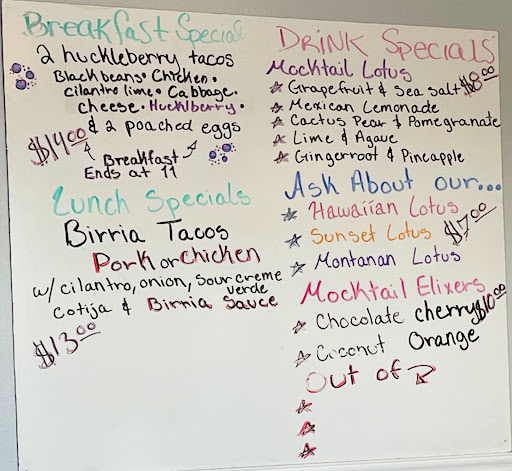 Breakfast Special
2 huckleberry tacos
Black beans • Chicken •
cilantro lime • Cabbage •
cheese • Hucklberry •
& 2 poached eggs
$14.00
Breakfast
Ends at 11
Lunch Specials
Birria Tacos
Pork or Chicken
w/ cilantro, onion, sour creme
verde
Cotija & Birria Sauce
$13.00
DRINK SPECIALS
Mocktail Lotus
$8.00
Grapefruit & Sea salt
Mexican Lemonade
Cactus Pear & Pomegranate
Lime & Agave
Gingerroot & Pineapple
Ask About our...
Hawaiian Lotus
Sunset Lotus
$7.00
Montanan Lotus
Mocktail Elixers
$10.00
Chocolate cherry
Coconut Orange
Out of